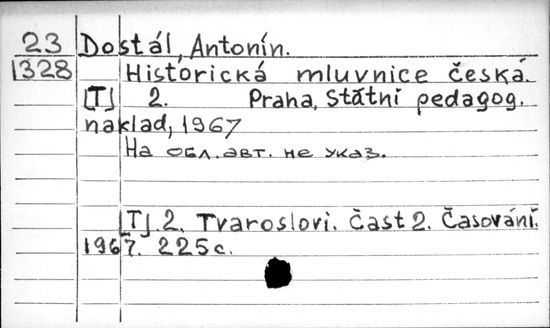 23 Dostál, Antonín.
1328 Historická mluvnice česká.
[T] 2. Praha, Státní pedagog.
naklad, 1967
На обл. авт. не указ.
[T]. 2. Tvarosloví. Část 2. Časování.
1967. 225 с.